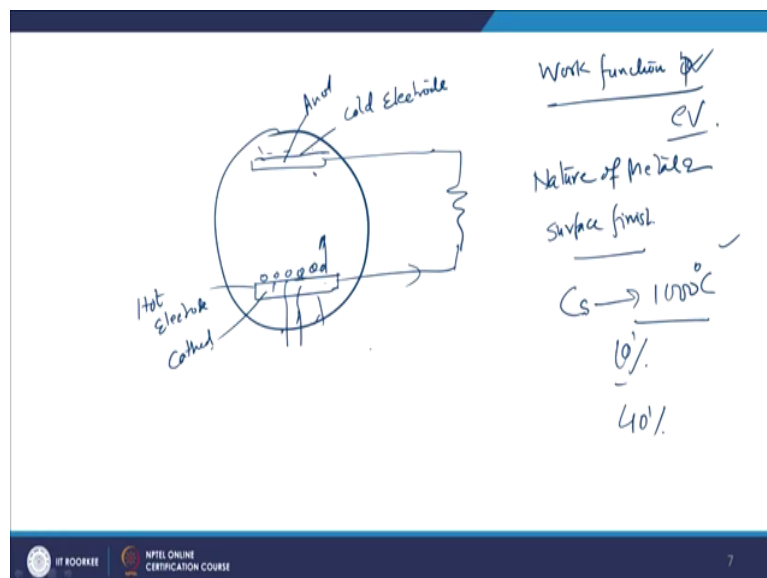 Anod
Cold Electrode
Hot
Electrode
Cathod
Work function φ
eV.
Nature of Metals
Surface finish
Cs → 1000°C
10%
40%
IIT ROORKEE
NPTEL ONLINE
CERTIFICATION COURSE
7